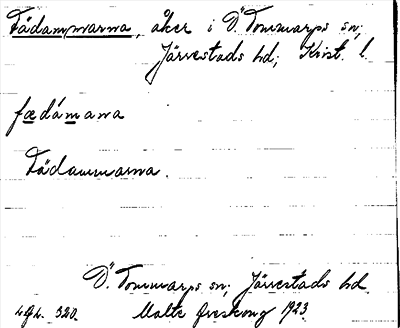 Fädammarna, åker i Ö. Tommarps sn;
Järrestads hd; Krist. l.
fædámana
Fädammarna.
Ö. Tommarps sn; Järrestads hd.
320. Malte 1923.